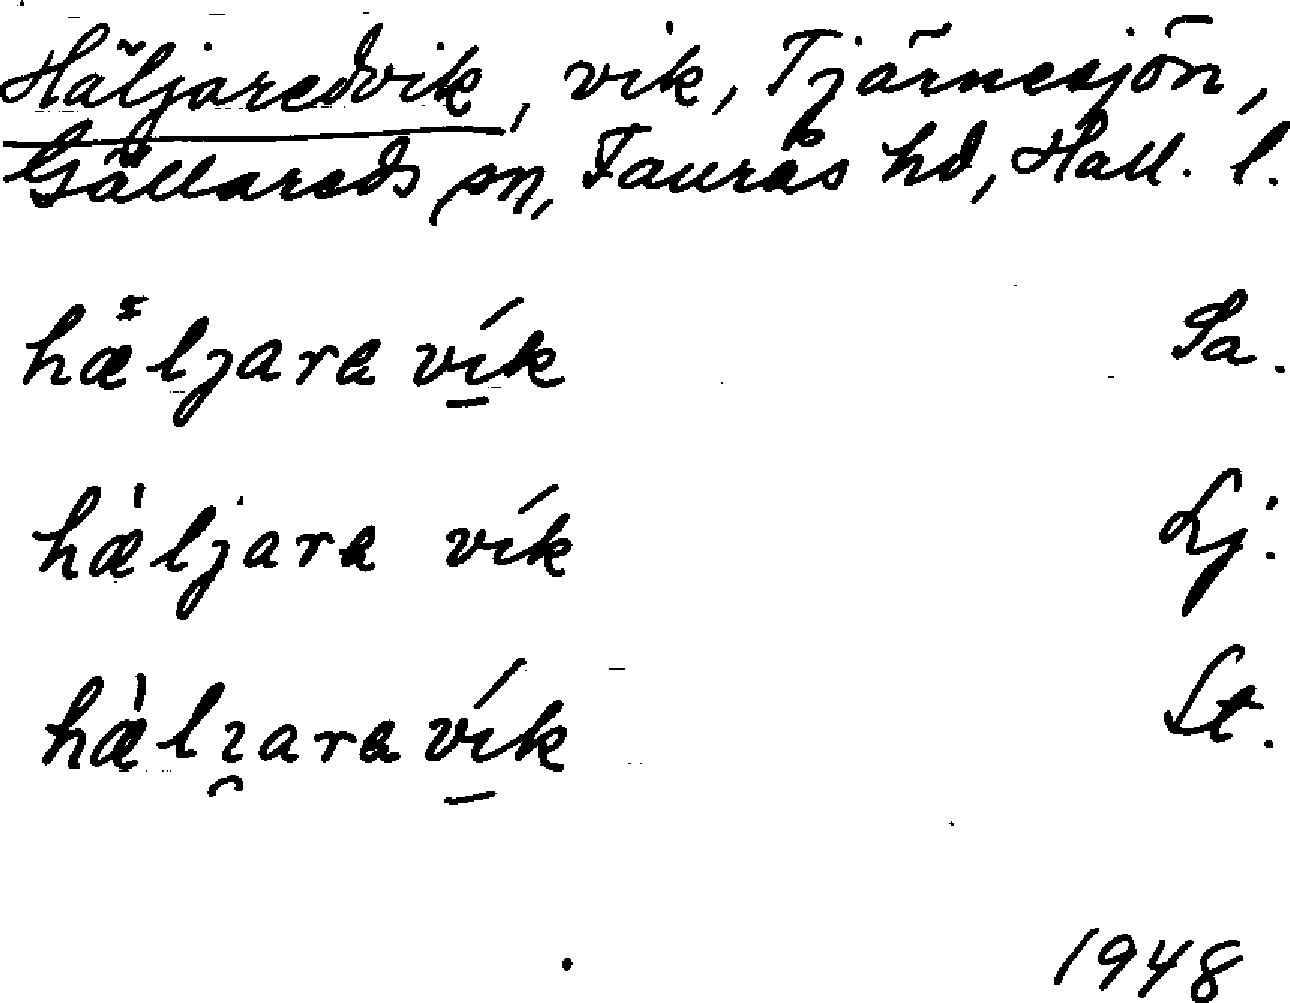 Häljaredvik, vik, Tjärnesjön,
Gällareds sn, Faurås hd, Hall. l.
hæ̀ljara vík Sa.
hæ̀ljara vík Lj.
hæ̀lɿ̯ara vík St.
1948